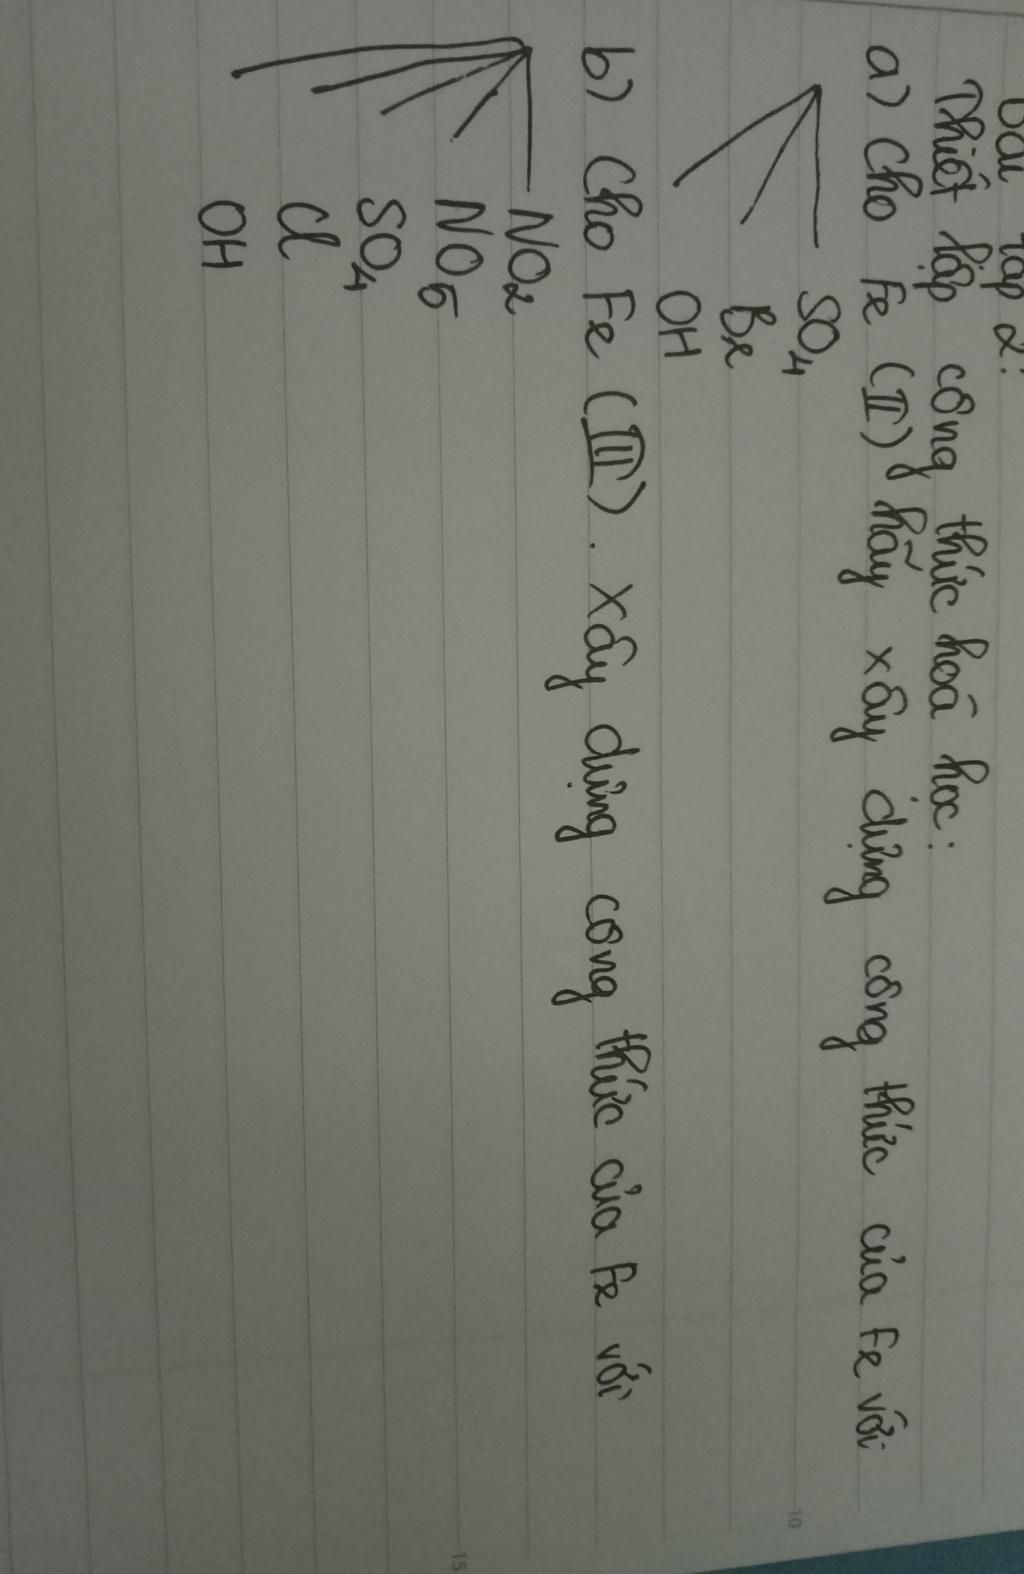 Bài tập 2:
Thiết lập công thức hoá học:
a) Cho Fe (II) hãy xây dựng công thức của Fe với
SO4
Br
OH
b) Cho Fe (III). xây dựng công thức của Fe với
NO2
NO5
SO4
Cl
OH
10
15